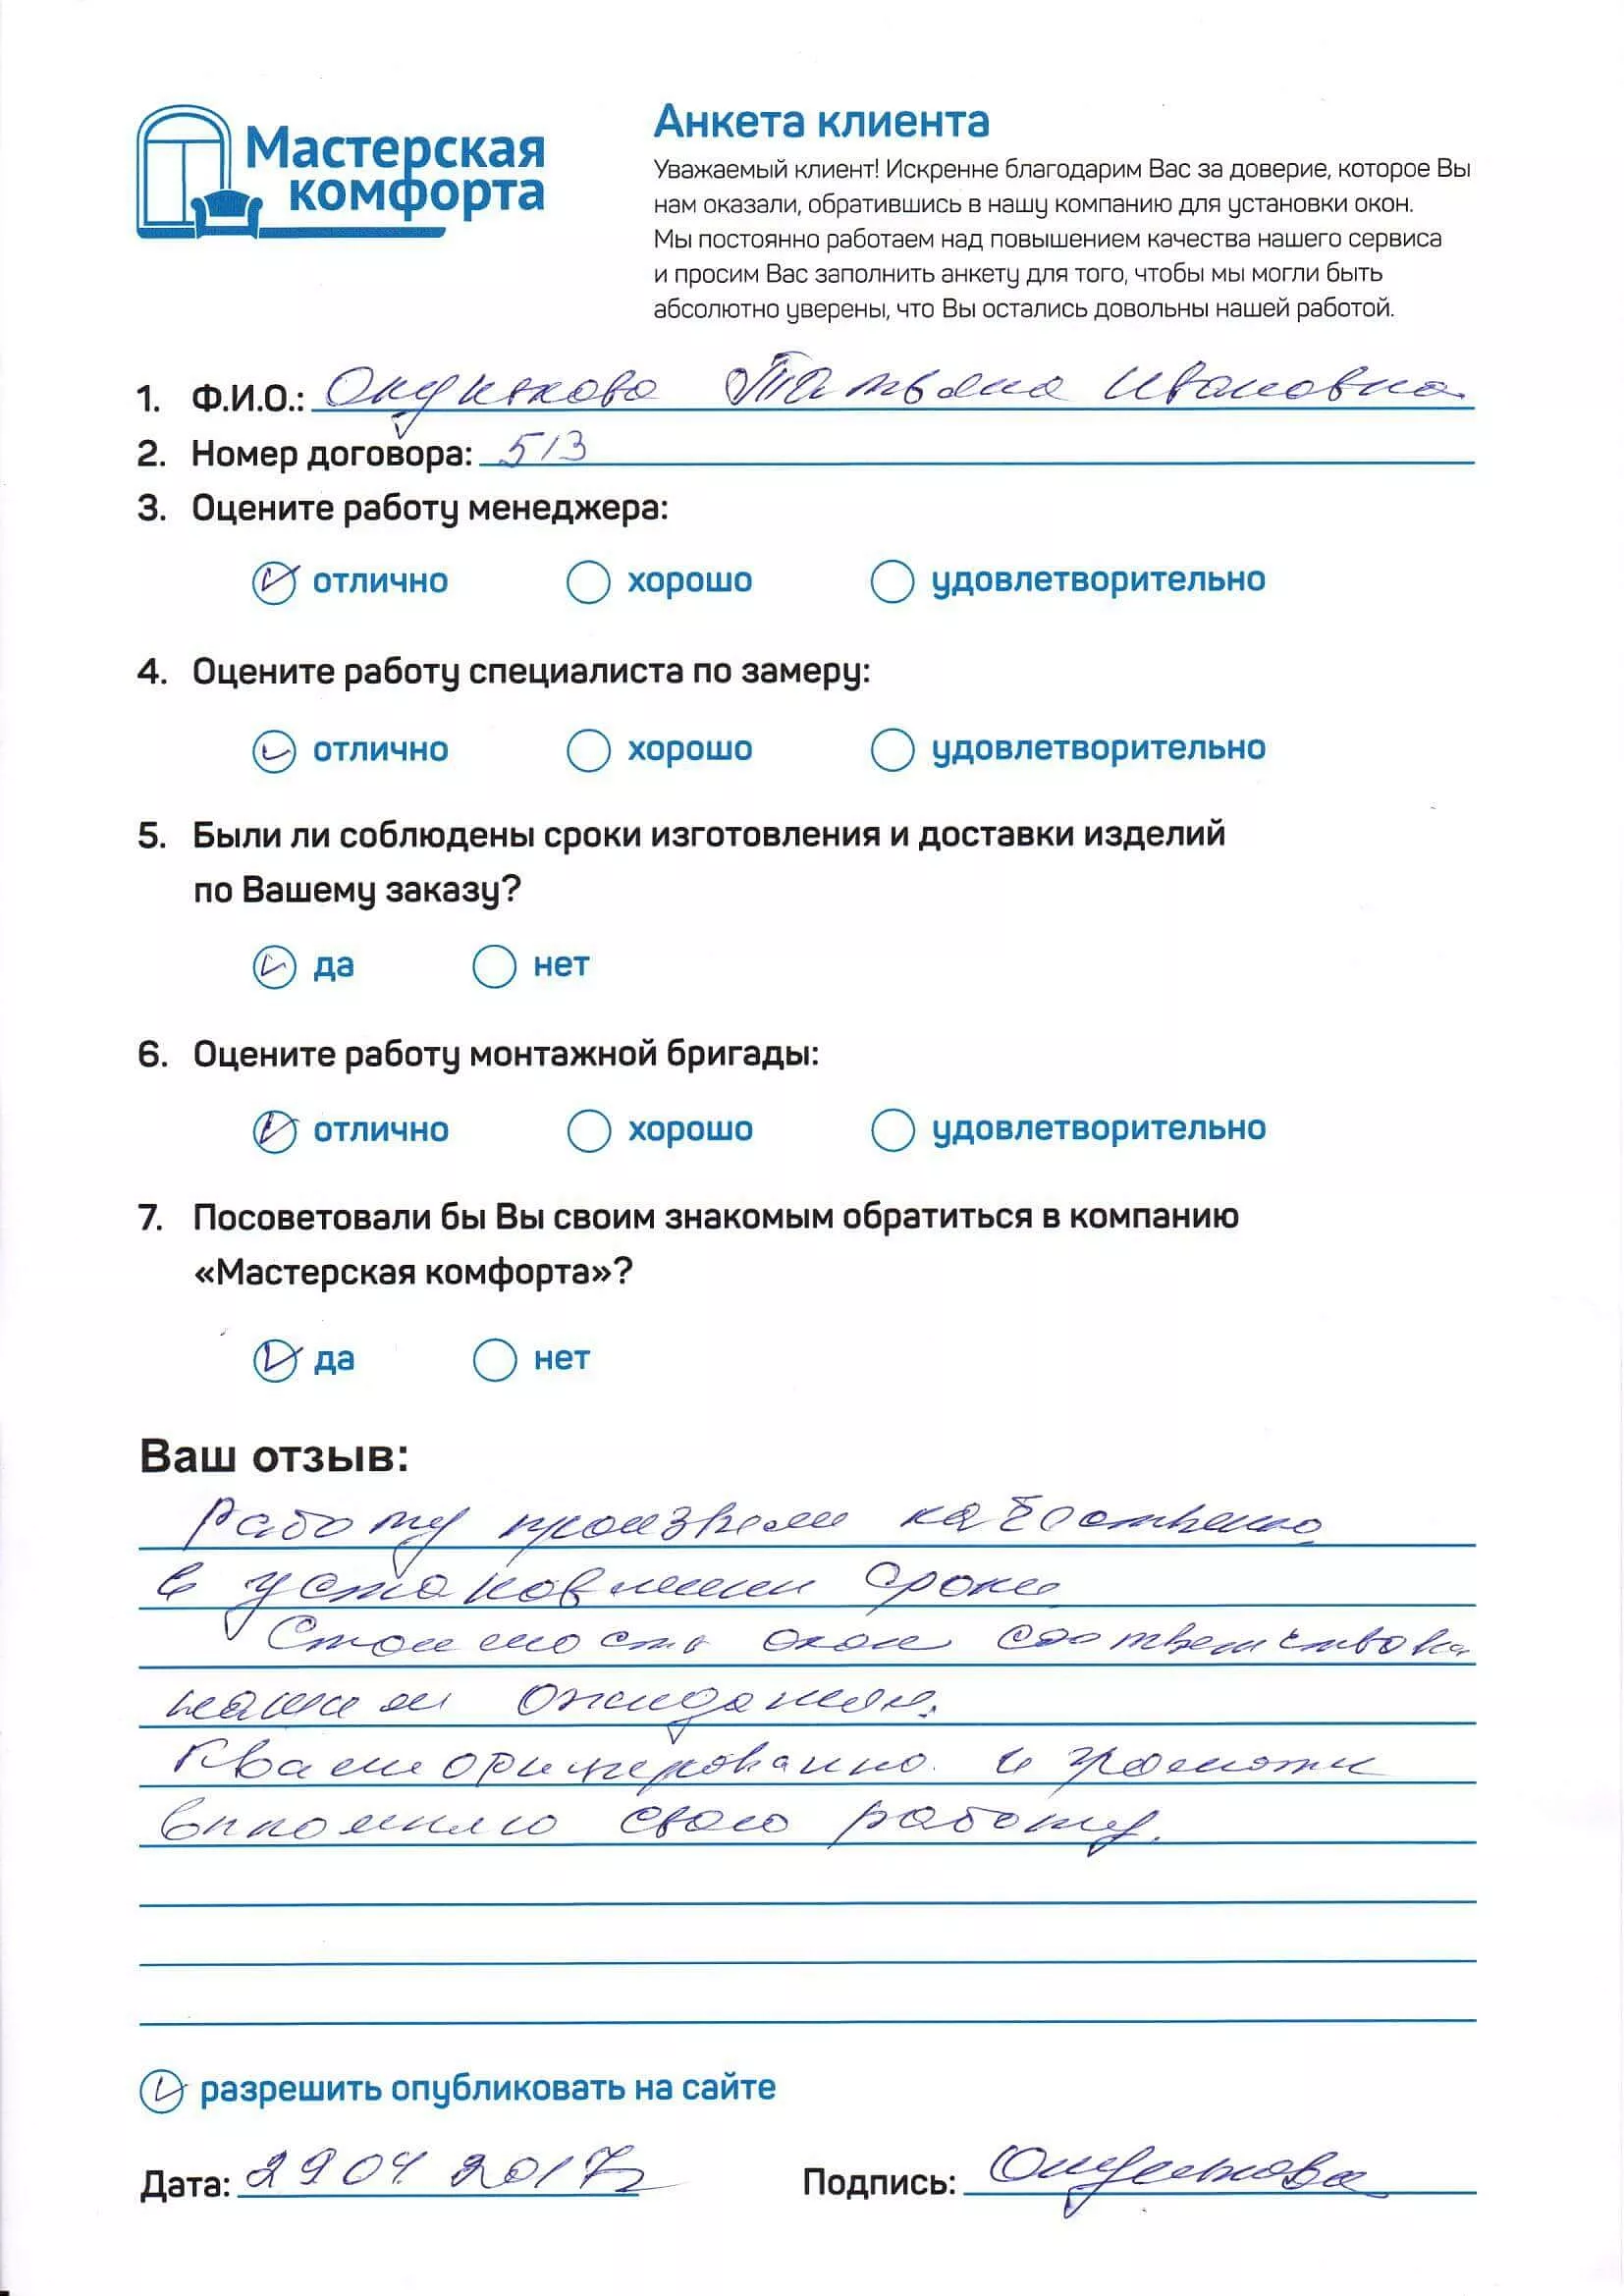 Мастерская
комфорта
Анкета клиента
Уважаемый клиент! Искренне благодарим Вас за доверие, которое Вы
нам оказали, обратившись в нашу компанию для установки окон.
Мы постоянно работаем над повышением качества нашего сервиса
и просим Вас заполнить анкету для того, чтобы мы могли быть
абсолютно уверены, что Вы остались довольны нашей работой.
1. Ф.И.О.: Татьяна Ивановна
2. Номер договора: 513
3. Оцените работу менеджера:
отлично хорошо удовлетворительно
4. Оцените работу специалиста по замеру:
отлично хорошо удовлетворительно
5. Были ли соблюдены сроки изготовления и доставки изделий
по Вашему заказу?
да нет
6. Оцените работу монтажной бригады:
отлично хорошо удовлетворительно
7. Посоветовали бы Вы своим знакомым обратиться в компанию
«Мастерская комфорта»?
да нет
Ваш отзыв:
Работу произвели качественно
в сроки
Стоимость окон
нашим ожиданиям.
Квалифицированно и
свою работу.
разрешить опубликовать на сайте
Дата: 29 04. 2017г Подпись: